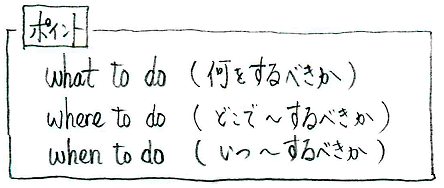 ポイント
what to do (何をするべきか)
where to do (どこで～するべきか)
when to do (いつ～するべきか)